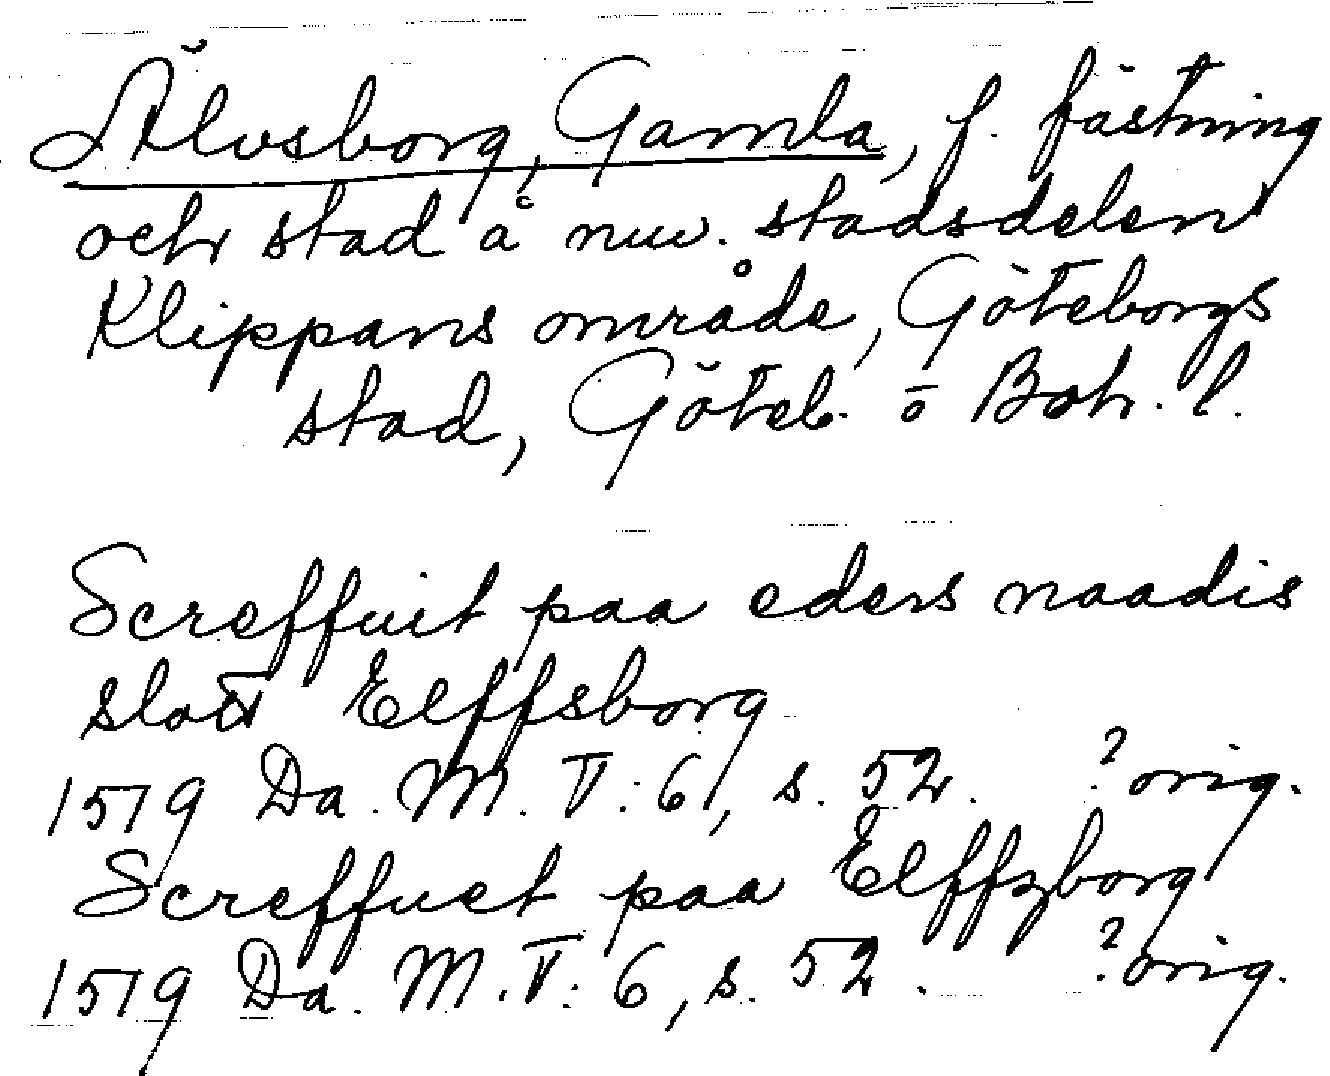 Älvsborg, Gamla, f. fästning
och stad å nuv. stadsdelen
Klippans område, Göteborgs
stad, Göteb. o Boh. l.
Screffuit paa eders naadis
slott Elffsborg
1519 Da. M. V: 6, s. 52. ? orig.
Screffuet paa Elffzborg
1519 Da. M. V: 6, s. 52. ? orig.